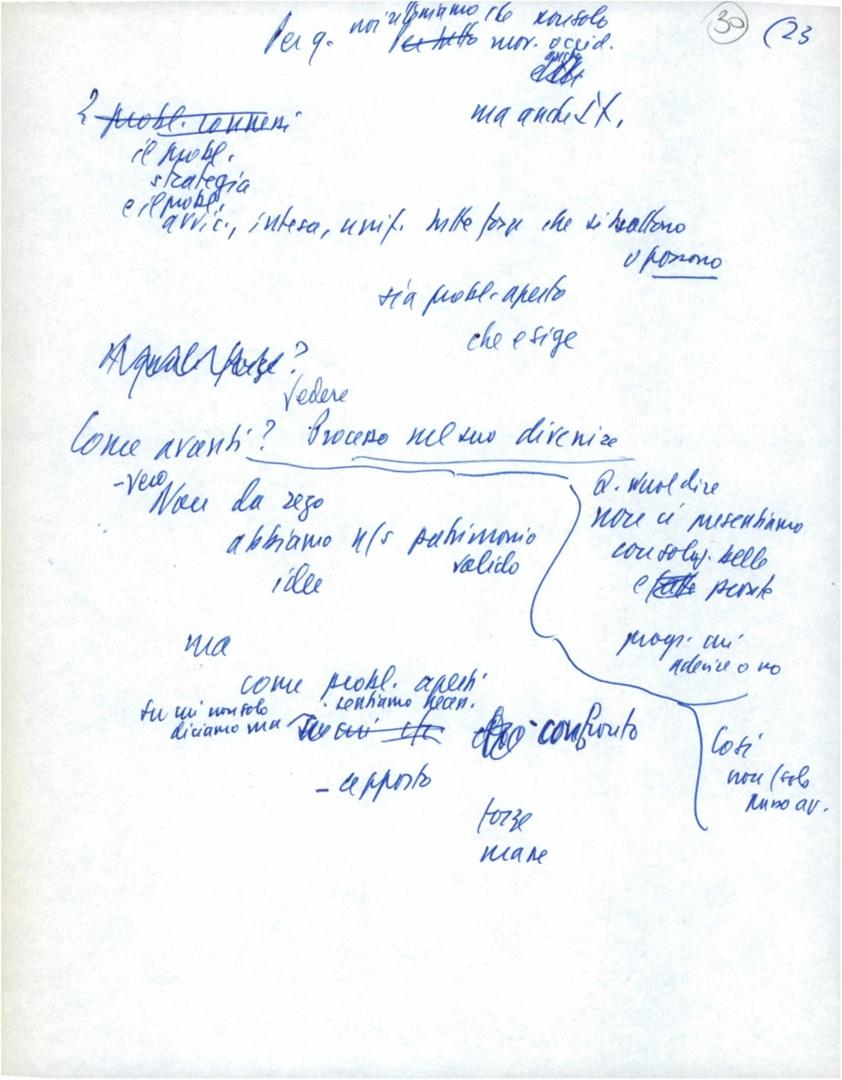 30 (23
noi riteniamo che non solo
Per q. Per tutto mov. occid.
ma anche
2 probl. connessi
il probl.
strategia
e il probl.
avvic., intesa, unif. tutte forze che si battono
o possono
sia probl. aperto
che esige
A quali forze?
vedere
Come avanti? Processo nel suo divenire
- vero
Non da zero
abbiamo n/s patrimonio
valido
idee
Q. vuol dire
non ci presentiamo
con soluz. belle
e fatte pronte
progr. cui
aderire o no
ma
come probl. aperti
su cui non solo sentiamo necess.
diciamo ma su cui che confronto
- apporto
forze
masse
Così
non (solo
passo av.